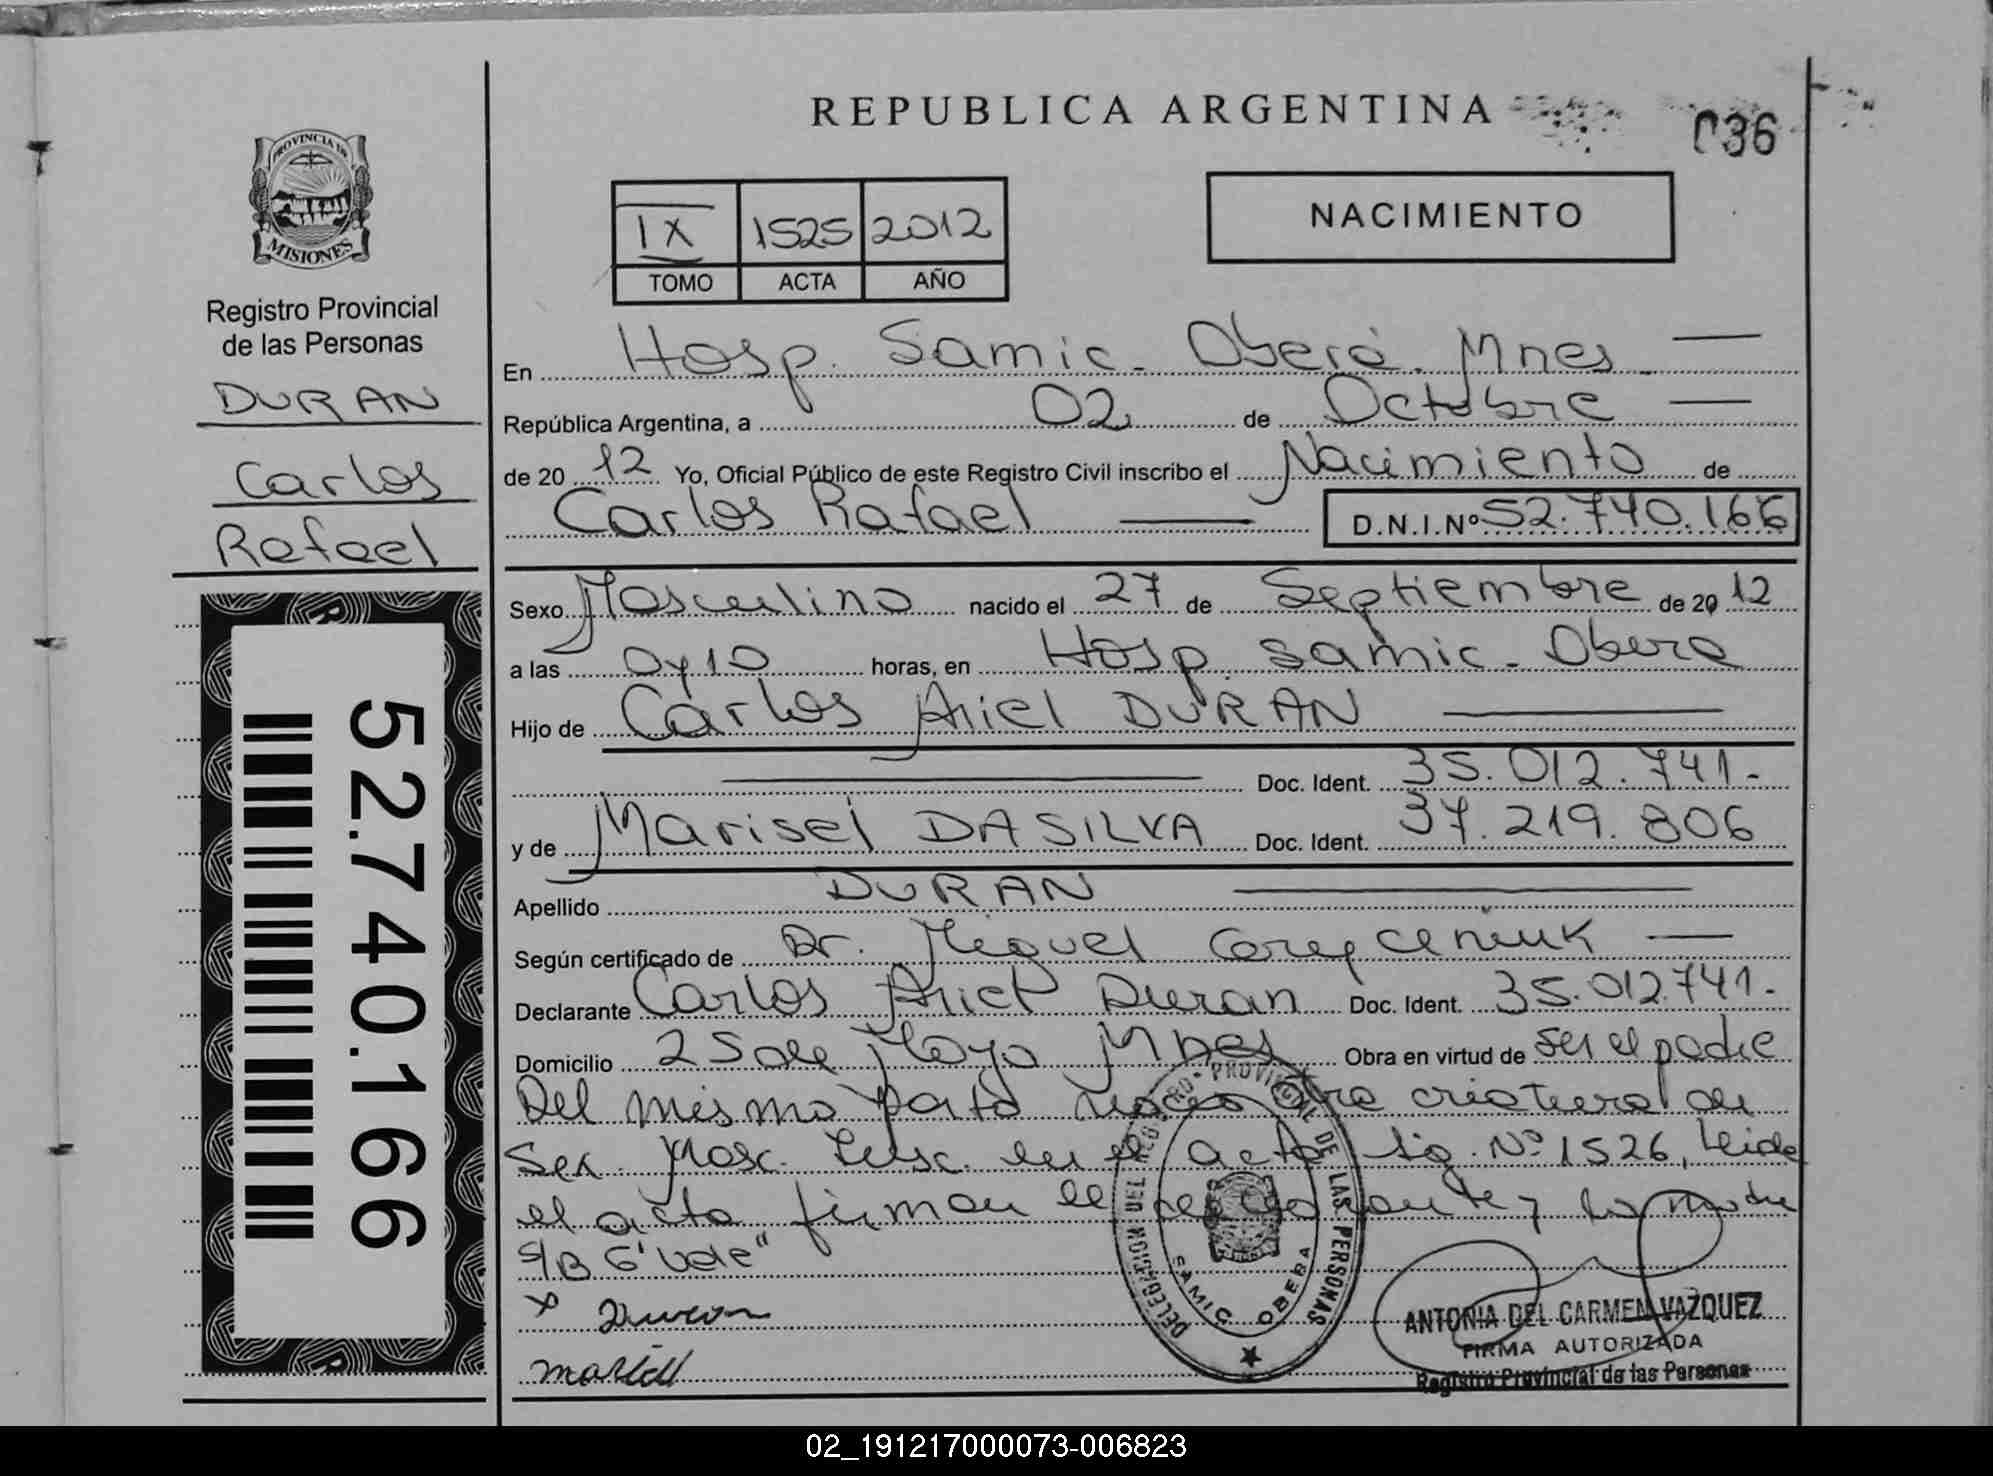 REPUBLICA ARGENTINA
036
PROVINCIA DE
MISIONES
Registro Provincial
de las Personas
DURAN
Carlos
Rafael
52.740.166
IX 1525 2012
TOMO ACTA AÑO
NACIMIENTO
En Hosp. Samic - Oberá. Mnes
República Argentina, a 02 de Octubre
de 20 12 Yo, Oficial Público de este Registro Civil inscribo el Nacimiento de
Carlos Rafael D.N.I.Nº 52.740.166
Sexo Masculino nacido el 27 de Septiembre de 20 12
a las 0y10 horas, en Hosp Samic - Obera
Hijo de Carlos Ariel DURAN
Doc. Ident. 35.012.741.-
y de Marisel DA SILVA Doc. Ident. 37.219.806
Apellido DURAN
Según certificado de Dr. Miguel
Declarante Carlos Ariel Duran Doc. Ident. 35.012.741.-
Domicilio 25 de Mayo Mnes Obra en virtud de ser el padre
Del mismo parto otra criatura de
Sex. Masc. en el acta sig. Nº 1526, Leida
el acta firman el declarante y la madre
S/B 6 "Vale"
x Duran
DELEGACION DEL REGISTRO PROVINCIAL DE LAS PERSONAS
SAMIC OBERA
ANTONIA DEL CARMEN VAZQUEZ
FIRMA AUTORIZADA
Registro Provincial de las Personas
02_191217000073-006823